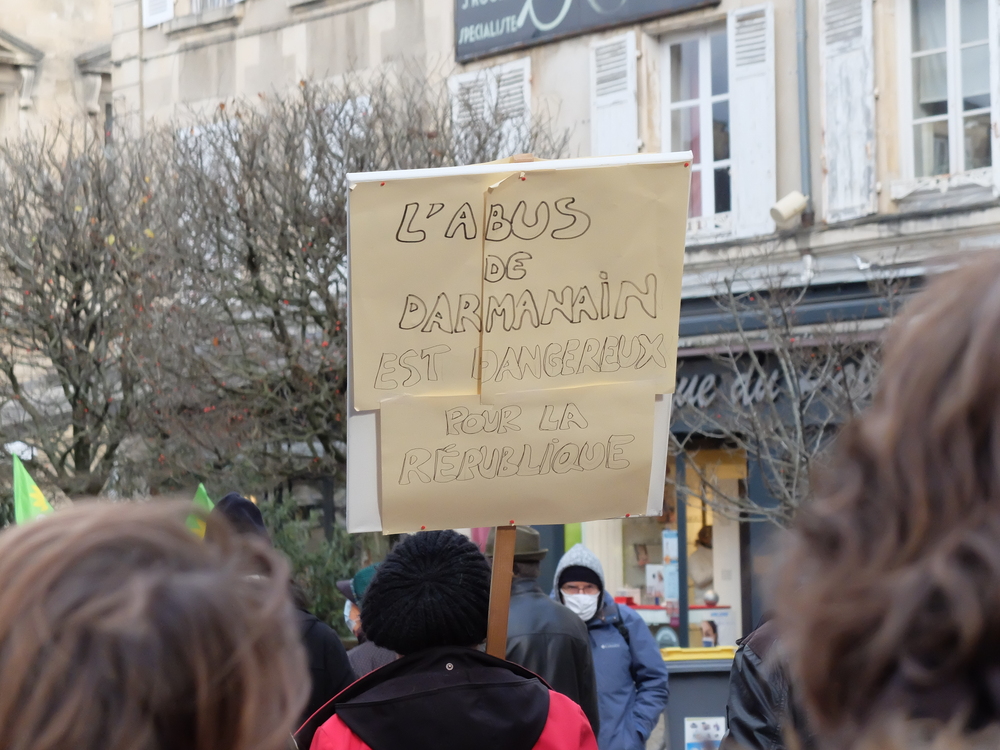 SPECIALISTE
L'ABUS
DE
DARMANAIN
EST DANGEREUX
POUR LA
RÉPUBLIQUE